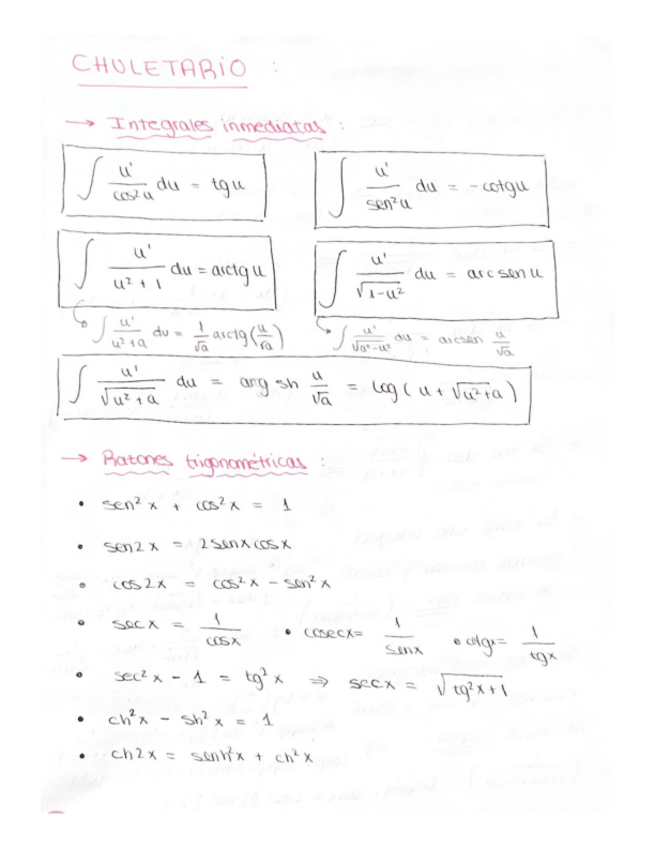 CHULETARIO :
→ Integrales inmediatas :
∫ u'/cos²u du = tg u
∫ u'/sen²u du = - cotg u
∫ u'/(u² + 1) du = arctg u
∫ u'/√(1-u²) du = arc sen u
∫ u'/(u²+a) du = 1/√a arctg(u/√a)
∫ u'/√(a²-u²) du = arcsen u/√a
∫ u'/√(u²+a) du = arg sh u/√a = log ( u + √(u²+a) )
→ Razones trigonométricas :
• sen² x + cos² x = 1
• sen 2x = 2 senx cosx
• cos 2x = cos² x - sen² x
• sec x = 1/cosx • cosecx = 1/senx • cotgx = 1/tgx
• sec² x - 1 = tg² x ⇒ secx = √(tg²x+1)
• ch² x - sh² x = 1
• ch 2x = senh²x + ch² x